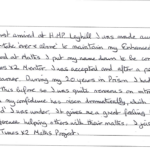 first arrived at H.M.P Leyhill I was made aw
able over & above to maintain my Enhanced
at Maths I put my name down to be con
x2 Mentor. I was accepted and after a pe
. During my 20 years in Prison I had
this before so I was quite nervous on
my confidence has risen dramatically, which
I was under. It gives me a great feeling
person helping others with their maths. I
Times x2 Maths Project.